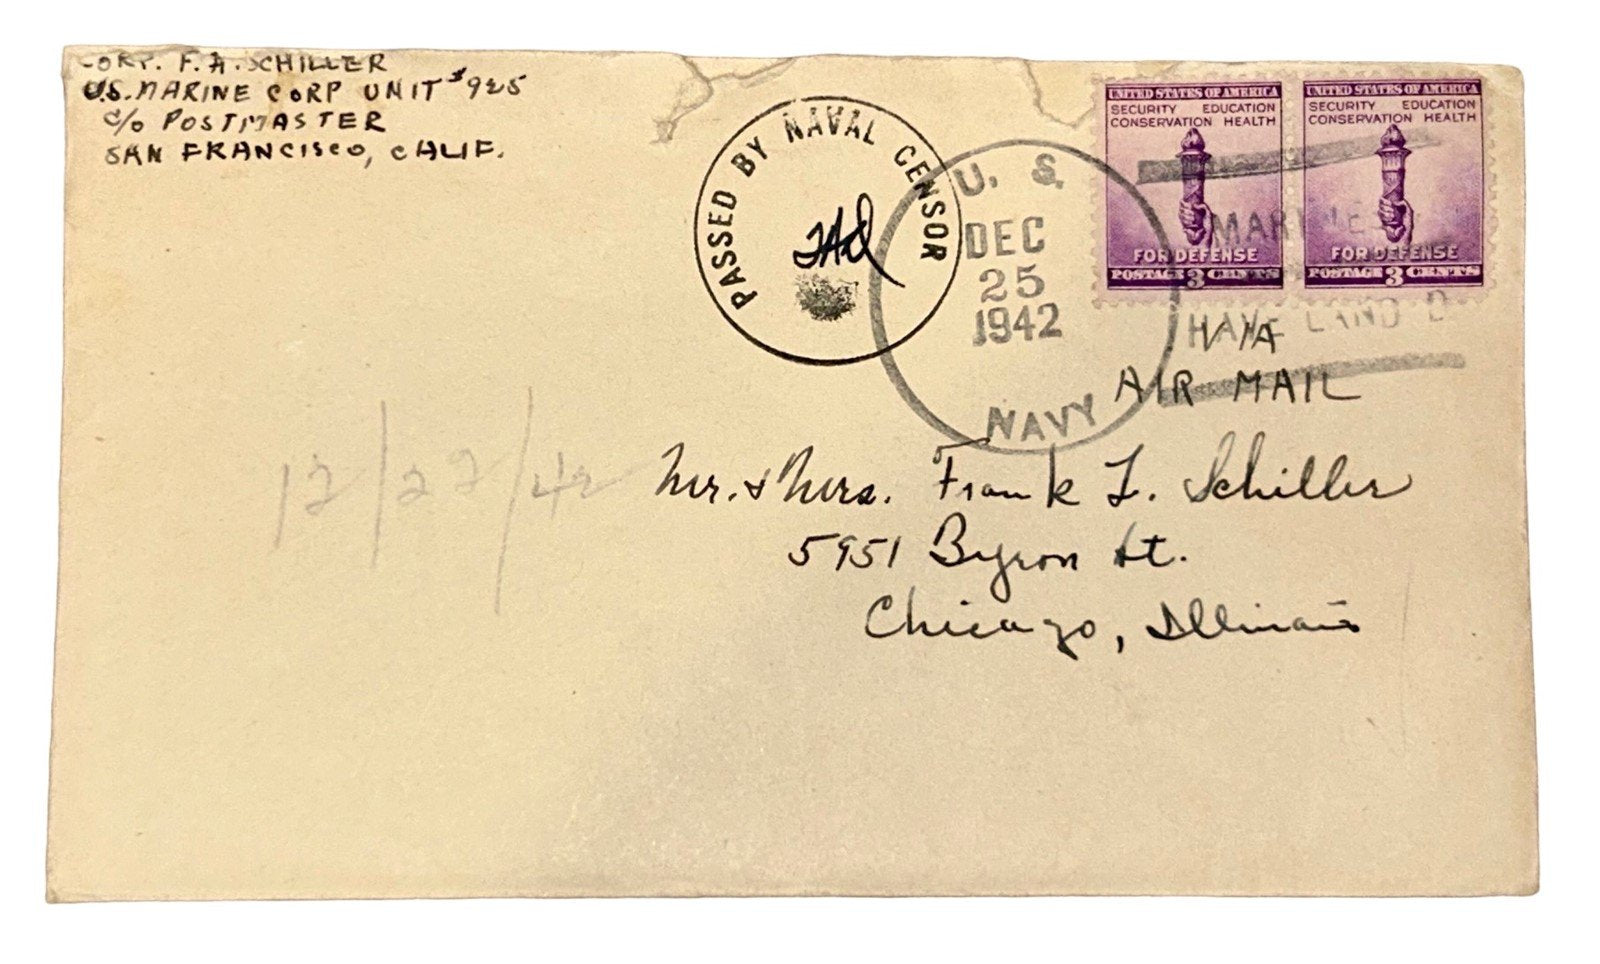 CORP. F. A. SCHILLER
U.S. MARINE CORP UNIT #925
C/O POSTMASTER
SAN FRANCISCO, CALIF.
PASSED BY NAVAL CENSOR
U. S.
DEC
25
1942
NAVY
UNITED STATES OF AMERICA
SECURITY EDUCATION
CONSERVATION HEALTH
FOR DEFENSE
POSTAGE 3 CENTS
UNITED STATES OF AMERICA
SECURITY EDUCATION
CONSERVATION HEALTH
FOR DEFENSE
POSTAGE 3 CENTS
MARINE
VIA
AIR MAIL
12/27/42
Mr. & Mrs. Frank L. Schiller
5951 Byron St.
Chicago, Illinois